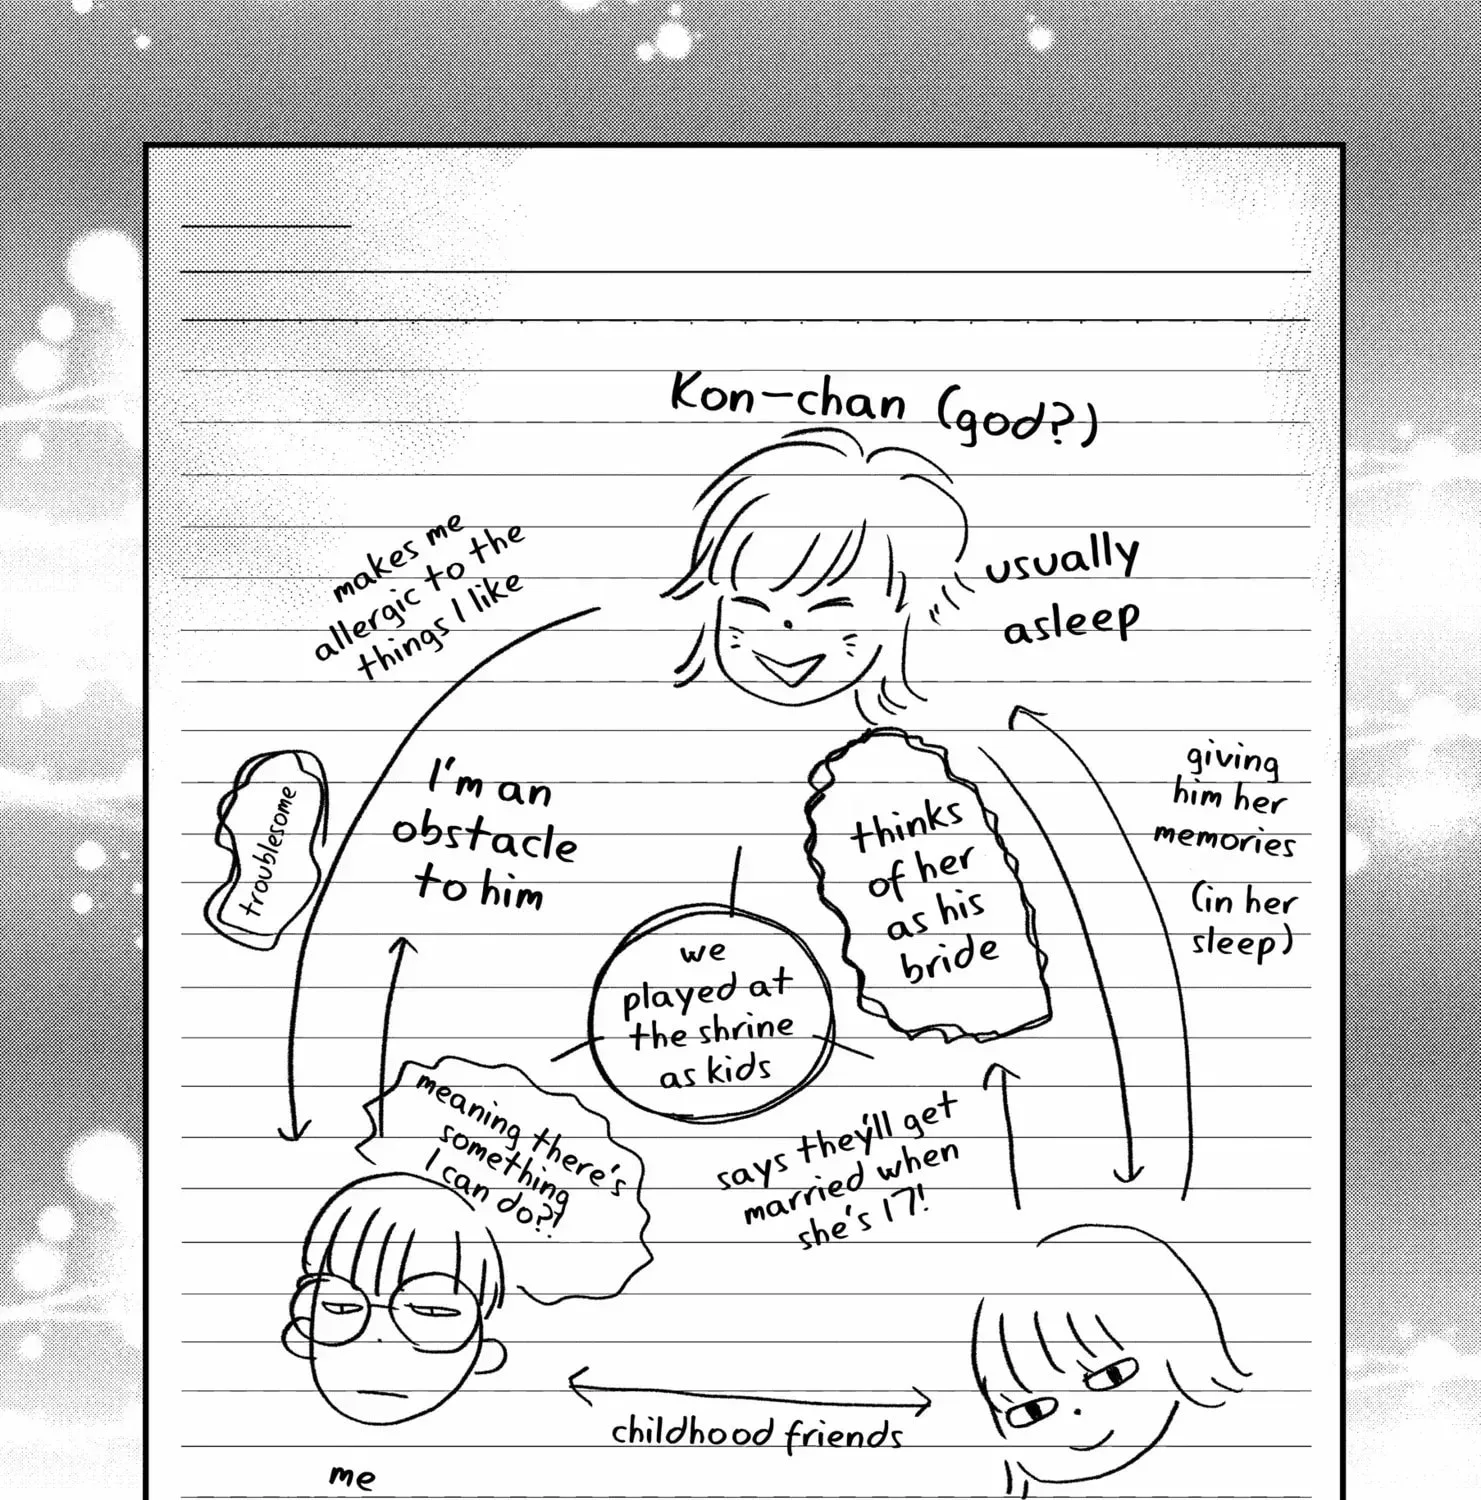 Kon-chan (god?)
makes me
allergic to the
things I like
usually
asleep
troublesome
I'm an
obstacle
to him
thinks
of her
as his
bride
giving
him her
memories
(in her
sleep)
we
played at
the shrine
as kids
meaning there's
something
I can do?!
says they'll get
married when
she's 17!
childhood friends
me